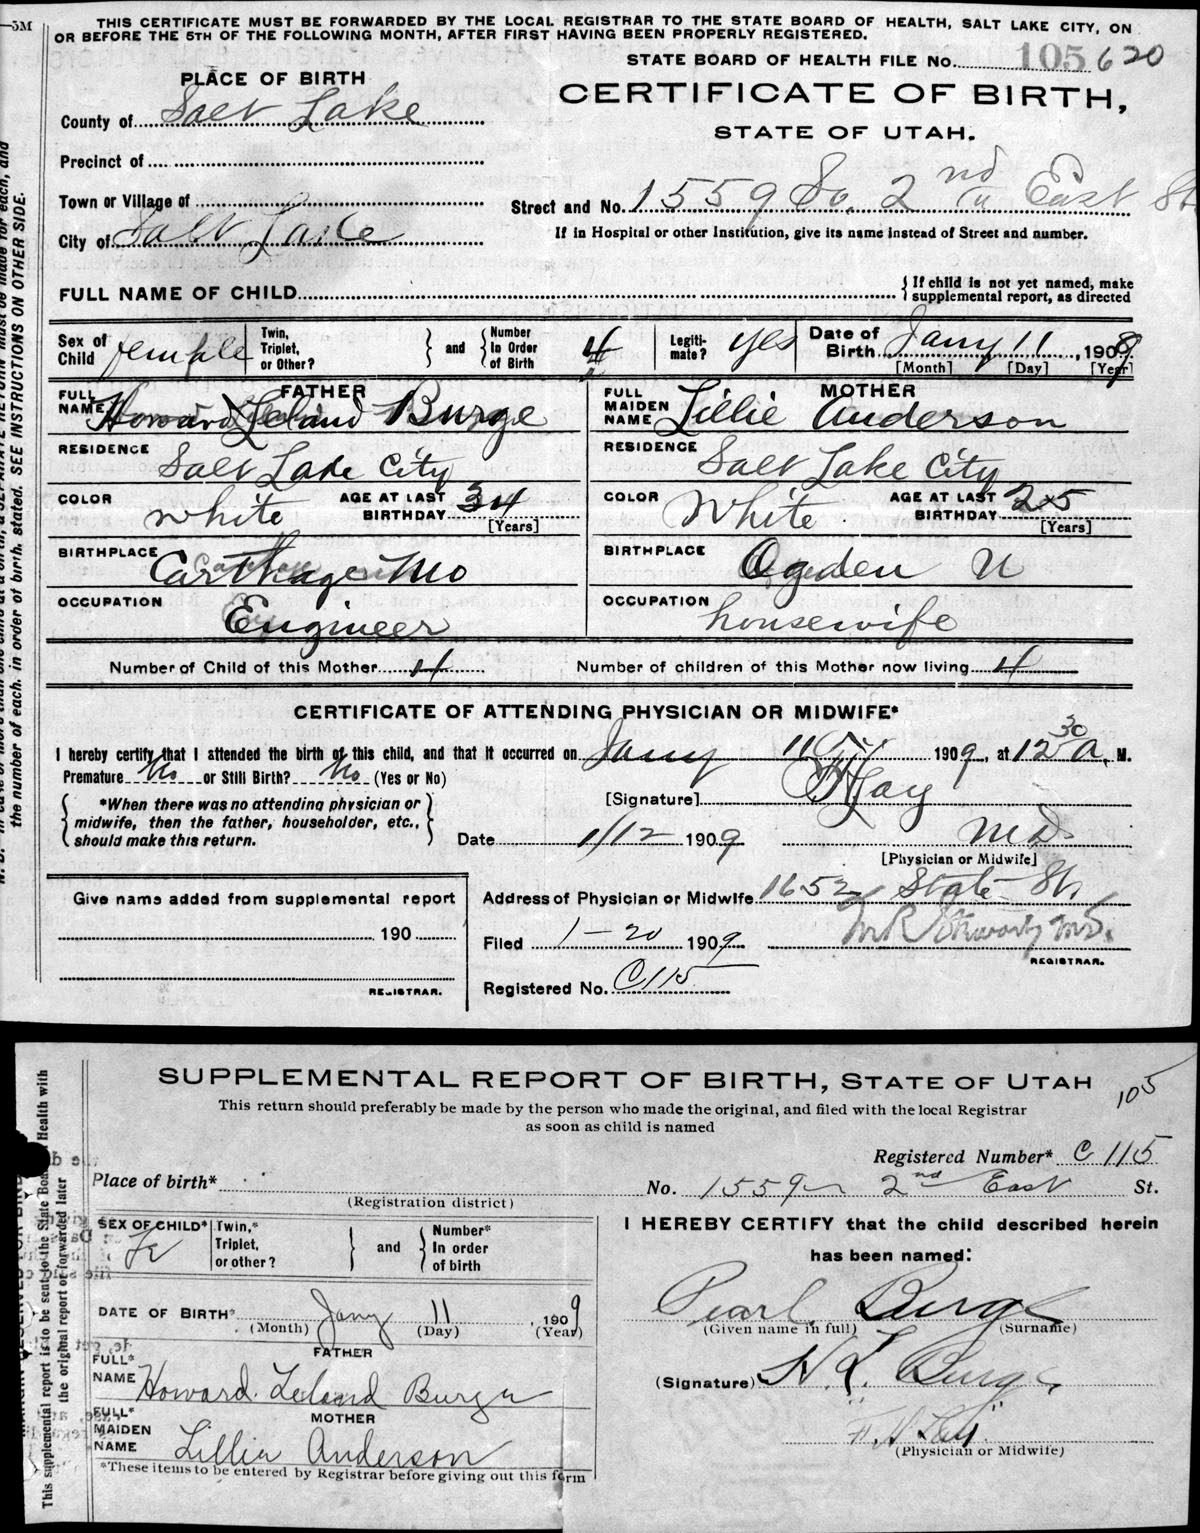 —5M
THIS CERTIFICATE MUST BE FORWARDED BY THE LOCAL REGISTRAR TO THE STATE BOARD OF HEALTH, SALT LAKE CITY, ON
OR BEFORE THE 5TH OF THE FOLLOWING MONTH, AFTER FIRST HAVING BEEN PROPERLY REGISTERED.
STATE BOARD OF HEALTH FILE No. 105620
PLACE OF BIRTH
CERTIFICATE OF BIRTH,
STATE OF UTAH.
County of Salt Lake
Precinct of
Town or Village of
City of Salt Lake
Street and No. 1559 So. 2nd East St
If in Hospital or other Institution, give its name instead of Street and number.
FULL NAME OF CHILD
{ If child is not yet named, make
supplemental report, as directed
Sex of Child female
Twin, Triplet, or Other? } and { Number In Order of Birth 4
Legitimate? yes
Date of Birth Jany 11, 1909
[Month] [Day] [Year]
FATHER
FULL NAME Howard Leland Burge
RESIDENCE Salt Lake City
COLOR white AGE AT LAST BIRTHDAY 34 [Years]
BIRTHPLACE Carthage Mo
OCCUPATION Engineer
MOTHER
FULL MAIDEN NAME Lillie Anderson
RESIDENCE Salt Lake City
COLOR White AGE AT LAST BIRTHDAY 25 [Years]
BIRTHPLACE Ogden U
OCCUPATION housewife
Number of Child of this Mother 4 Number of children of this Mother now living 4
CERTIFICATE OF ATTENDING PHYSICIAN OR MIDWIFE*
I hereby certify that I attended the birth of this child, and that it occurred on Jany 11 1909, at 12 30 A. M.
Premature No or Still Birth? No (Yes or No)
{ *When there was no attending physician or
midwife, then the father, householder, etc.,
should make this return. }
[Signature]
M.D.
[Physician or Midwife]
Date 1/12 1909
Give name added from supplemental report
190
REGISTRAR.
Address of Physician or Midwife 1652 State St
Filed 1-20 1909
REGISTRAR.
Registered No. C115
the number of each, in order of birth, stated. SEE INSTRUCTIONS ON OTHER SIDE.
SUPPLEMENTAL REPORT OF BIRTH, STATE OF UTAH
105
This return should preferably be made by the person who made the original, and filed with the local Registrar
as soon as child is named
Registered Number* C 115
Place of birth* No. 1559 2nd East St.
(Registration district)
SEX OF CHILD* Fe
Twin,* Triplet, or other? } and { Number* In order of birth
DATE OF BIRTH* Jany 11, 1909
(Month) (Day) (Year)
FATHER
FULL* NAME Howard Leland Burge
MOTHER
FULL* MAIDEN NAME Lillie Anderson
*These items to be entered by Registrar before giving out this form
I HEREBY CERTIFY that the child described herein
has been named:
Pearl Burge
(Given name in full) (Surname)
(Signature) H. L. Burge
(Physician or Midwife)
This supplemental report is to be sent to the State Board of Health with
the original report or forwarded later